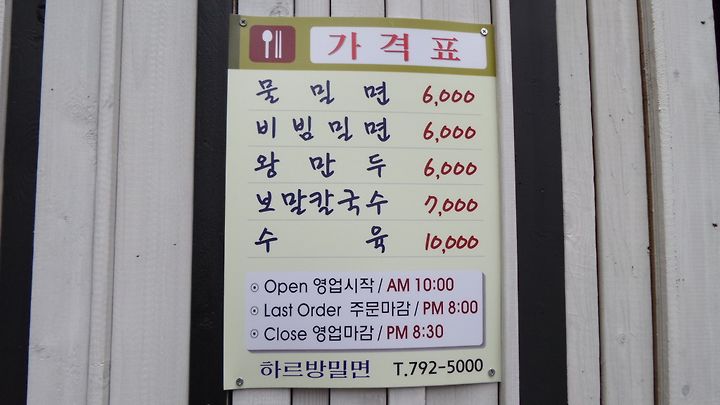 가격표
물밀면 6,000
비빔밀면 6,000
왕만두 6,000
보말칼국수 7,000
수육 10,000
Open 영업시작 / AM 10:00
Last Order 주문마감 / PM 8:00
Close 영업마감 / PM 8:30
하르방밀면 T.792-5000